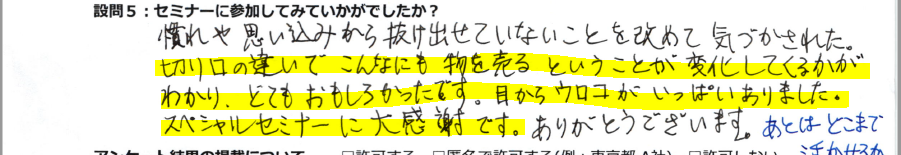 設問5：セミナーに参加してみていかがでしたか？
慣れや思い込みから抜け出せていないことを改めて気づかされた。
切り口の違いでこんなにも物を売るということが変化してくるかが
わかり、とてもおもしろかったです。目からウロコがいっぱいありました。
スペシャルセミナーに大感謝です。ありがとうございます。あとはどこまで
活かせるか
アンケート結果の掲載について　□許可する　□匿名で許可する(例：東京都 A社)　□許可しない